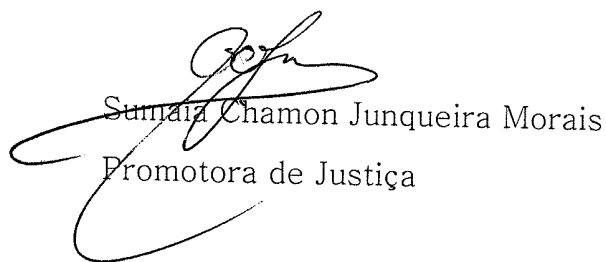 Sumaia Chamon Junqueira Morais
Promotora de Justiça